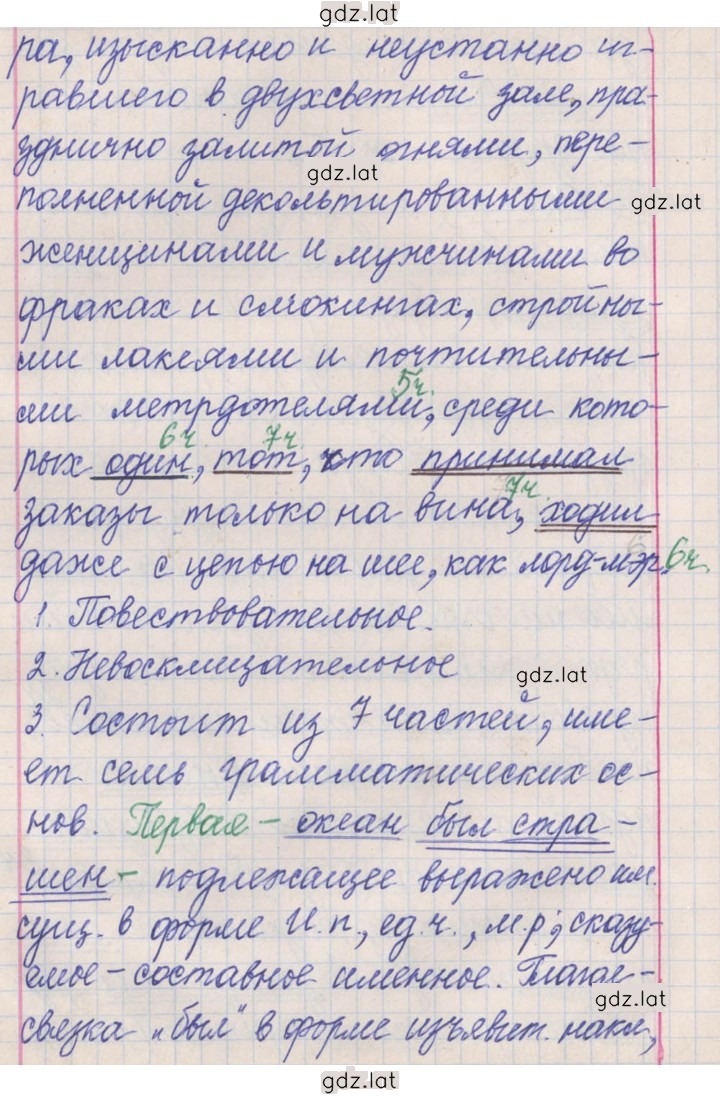 gdz.lat
ра, изысканно и неустанно иг-
равшего в двухсветной зале, пра-
зднично залитой огнями, пере-
gdz.lat
полненной декольтированными
gdz.lat
женщинами и мужчинами во
фраках и смокингах, стройны-
ми лакеями и почтительны-
5ч.
ми метрдотелями, среди кото-
6ч. 7ч.
рых один, тот, кто принимал
7ч.
заказы только на вина, ходил
даже с цепью на шее, как лорд-мэр. 6ч.
1. Повествовательное.
2. Невосклицательное
gdz.lat
3. Состоит из 7 частей, име-
ет семь грамматических ос-
нов. Первая – океан был стра-
шен – подлежащее выражено им.
сущ. в форме И.п., ед.ч., м.р.; сказу-
емое – составное именное. Глагол-
gdz.lat
связка „был" в форме изъявит. накл,
gdz.lat